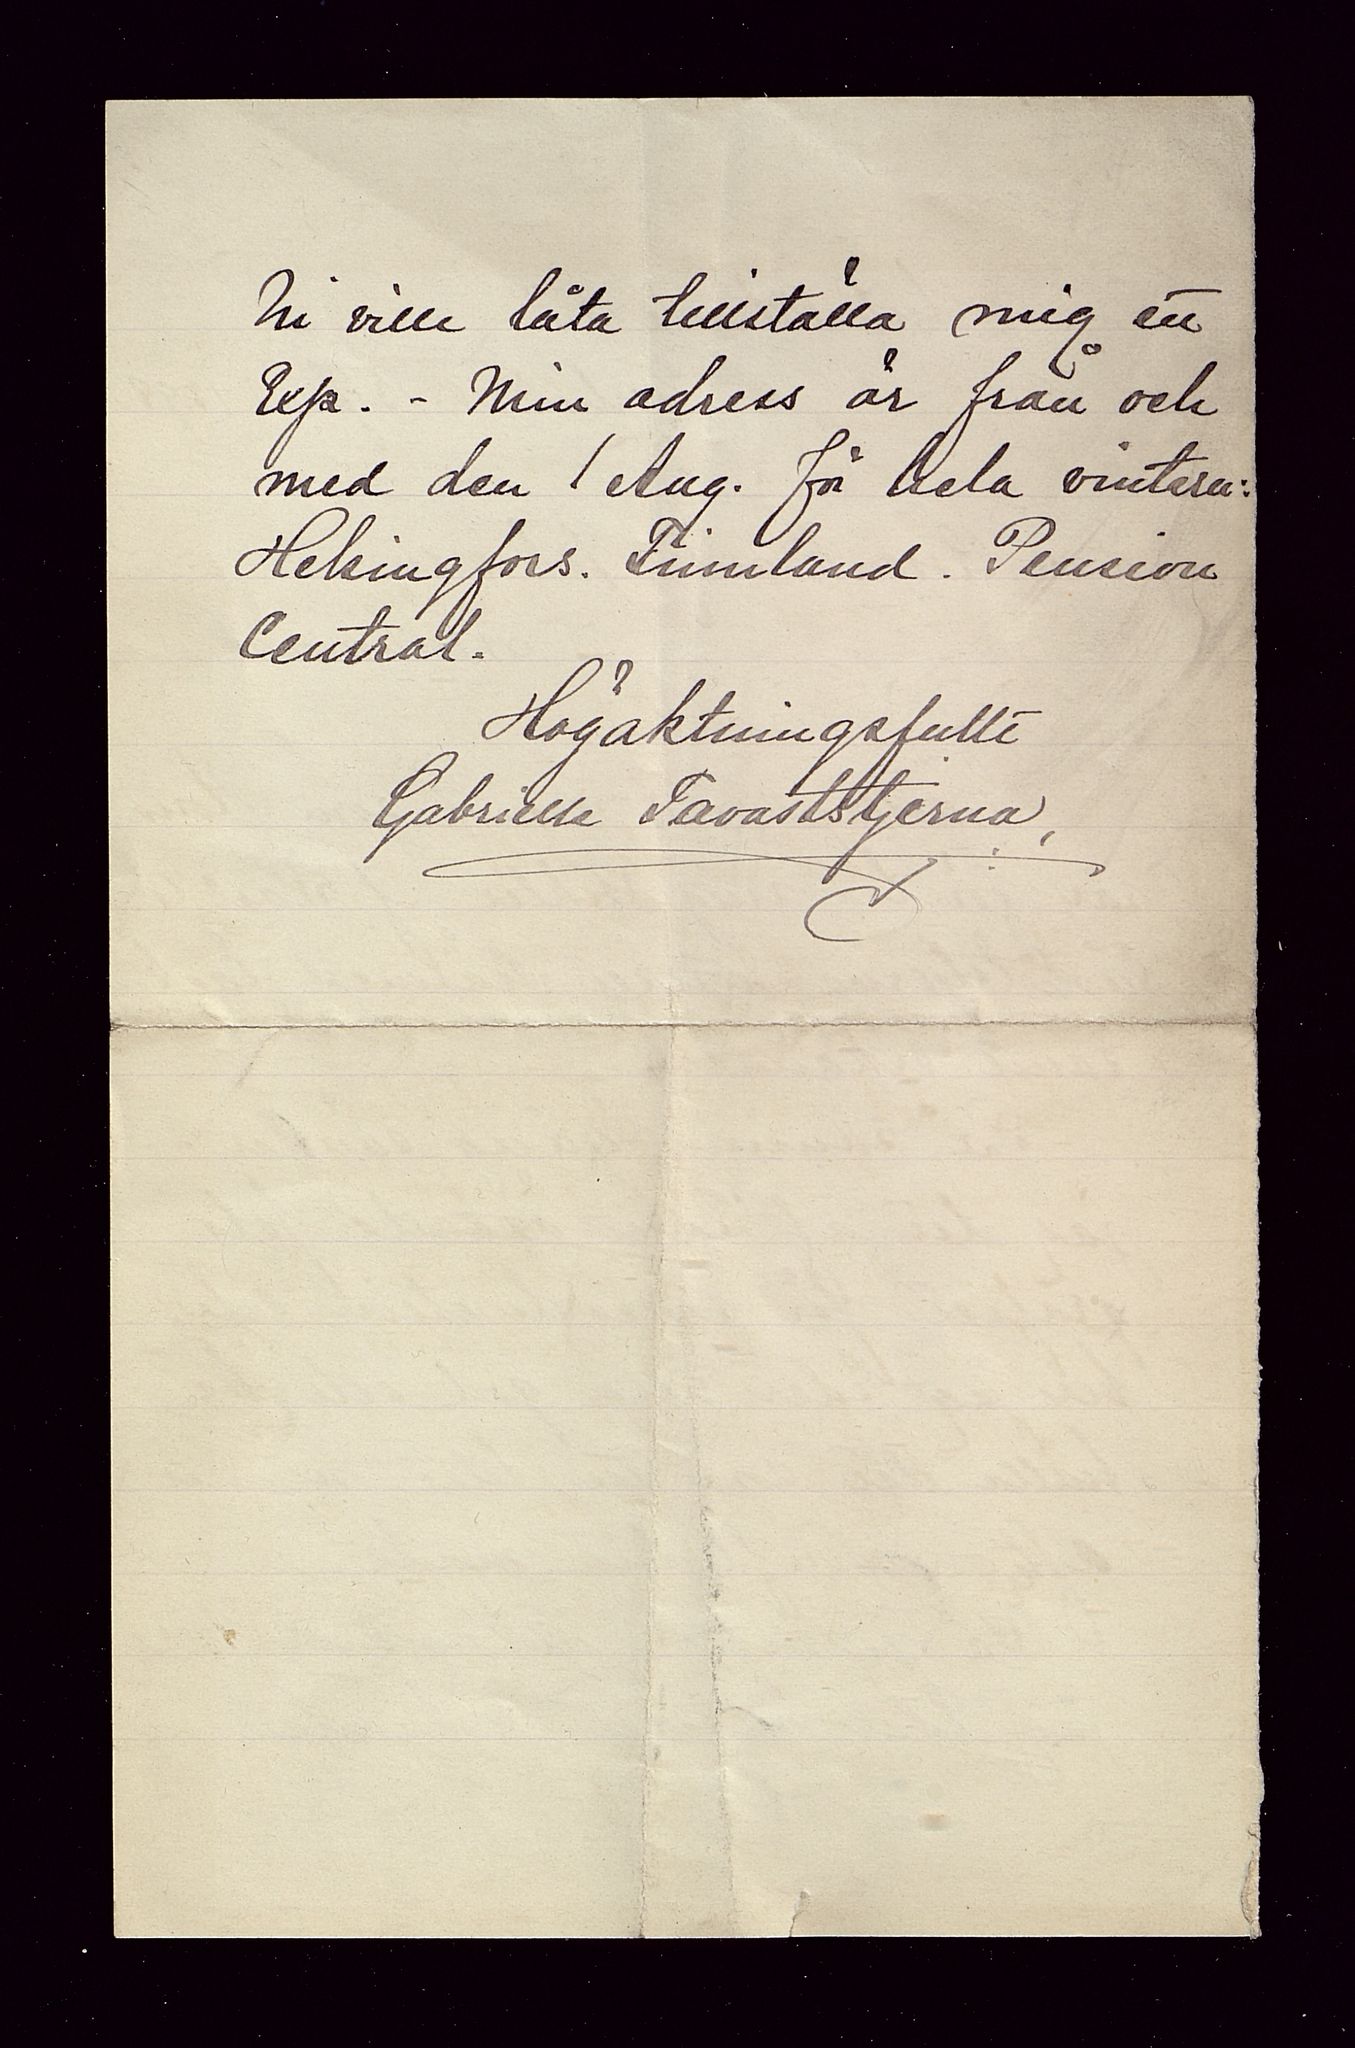 Ni ville låta tillställa mig ett
Exp. - Min adress är från och
med den 1 Aug. för hela vintern:
Helsingfors. Finnland. Pension
Central.
Högaktningsfullt
Gabrielle Tavaststjerna,